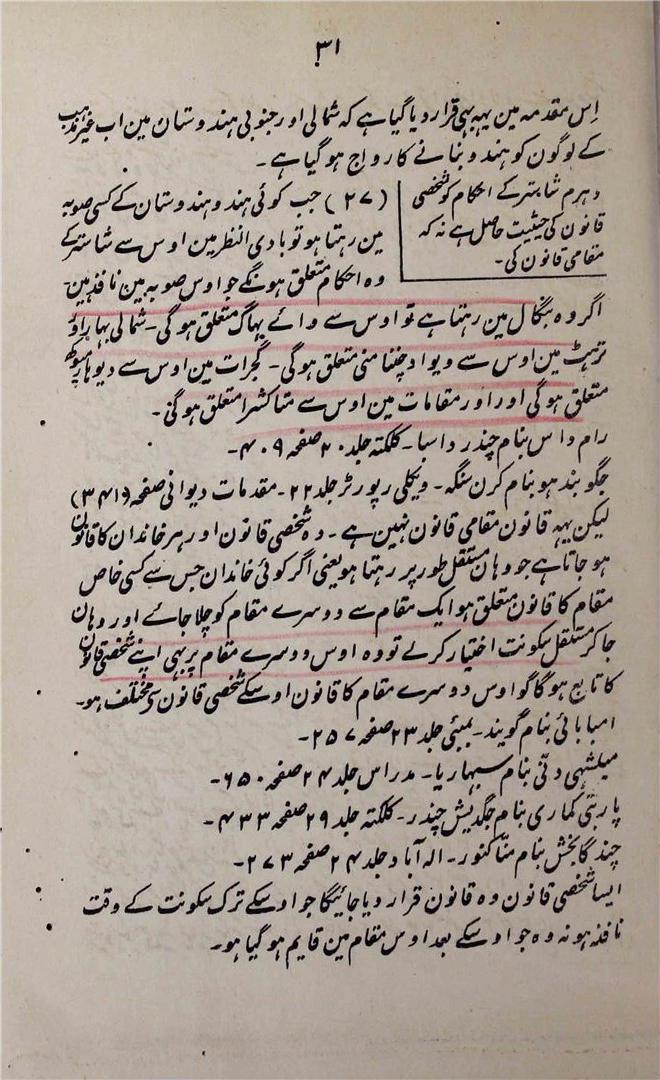 ۳۱
اِس مقدمہ مین یہہ بہی قرار دیا گیا ہے کہ شمالی اور جنوبی ہندوستان مین اب غیر مذہب
کے لوگون کو ہندو بنانے کا رواج ہو گیا ہے۔
دہرم شاستر کے احکام کو شخصی
قانون کی حیثیت حاصل ہے نہ کہ
مقامی قانون کی۔
(۲۷) جب کوئی ہندو ہندوستان کے کسی صوبہ
مین رہتا ہو تو بادی النظر مین اوس سے شاستر کے
وہ احکام متعلق ہونگے جو اوس صوبہ مین نافذ ہین
اگر وہ بنگال مین رہتا ہے تو اوس سے دائے بہاگ متعلق ہوگی۔ شمالی بہار اور
ترہٹ مین اوس سے ویواد چنتامنی متعلق ہوگی۔ گجرات مین اوس سے ویوہار میوکھ
متعلق ہوگی اور اور مقامات مین اوس سے متاکشرا متعلق ہوگی۔
رام داس بنام چندر داسیا۔ کلکتہ جلد ۲۰ صفحہ ۴۰۹۔
جگو بندہو بنام کرن سنگہ۔ ویکلی رپورٹر جلد ۲۲۔ مقدمات دیوانی صفحہ (۳۴۱)
لیکن یہہ قانون مقامی قانون نہین ہے۔ وہ شخصی قانون اور ہر خاندان کا قانون
ہو جاتا ہے جو وہان مستقل طور پر رہتا ہو یعنی اگر کوئی خاندان جس سے کسی خاص
مقام کا قانون متعلق ہو ایک مقام سے دوسرے مقام کو چلا جائے اور وہان
جا کر مستقل سکونت اختیار کر لے تو وہ اوس دوسرے مقام پر بہی اپنے شخصی قانون
کا تابع ہوگا گو اوس دوسرے مقام کا قانون اوسکے شخصی قانون سے مختلف ہو۔
امبا بائی بنام گویند۔ بمبئی جلد ۲۳ صفحہ ۲۵۷۔
میلشہی دتی بنام سبہاریا۔ مدراس جلد ۲۴ صفحہ ۶۵۰۔
پاربتی کماری بنام جگدیش چندر۔ کلکتہ جلد ۲۹ صفحہ ۴۳۳۔
چندکا بخش بنام منا کنور۔ الہ آباد جلد ۲۴ صفحہ ۲۷۳۔
ایسا شخصی قانون وہ قانون قرار دیا جائیگا جو اوسکے ترک سکونت کے وقت
نافذ ہو نہ وہ جو اوسکے بعد اوس مقام مین قایم ہو گیا ہو۔